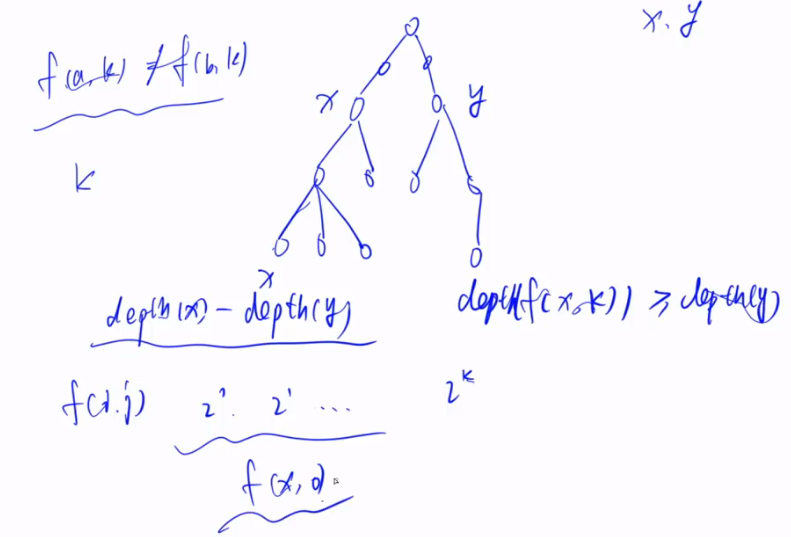 x. y
f(a,k) ≠ f(b,k)
x y
k
x
depth(x) - depth(y)
depth(f(x,k)) ⩾ depth(y)
f(i.j) 2⁰. 2¹ ... 2ᵏ
f(x,0).